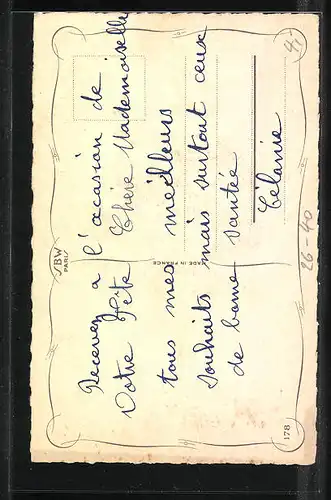 Recevez a l'occasion de
Votre Fête Chère Mademoiselle
tous mes meilleurs
souhaits mais surtout ceux
de bonne santée
Célanie
SBW
PARIS
MADE IN FRANCE
178
26-40